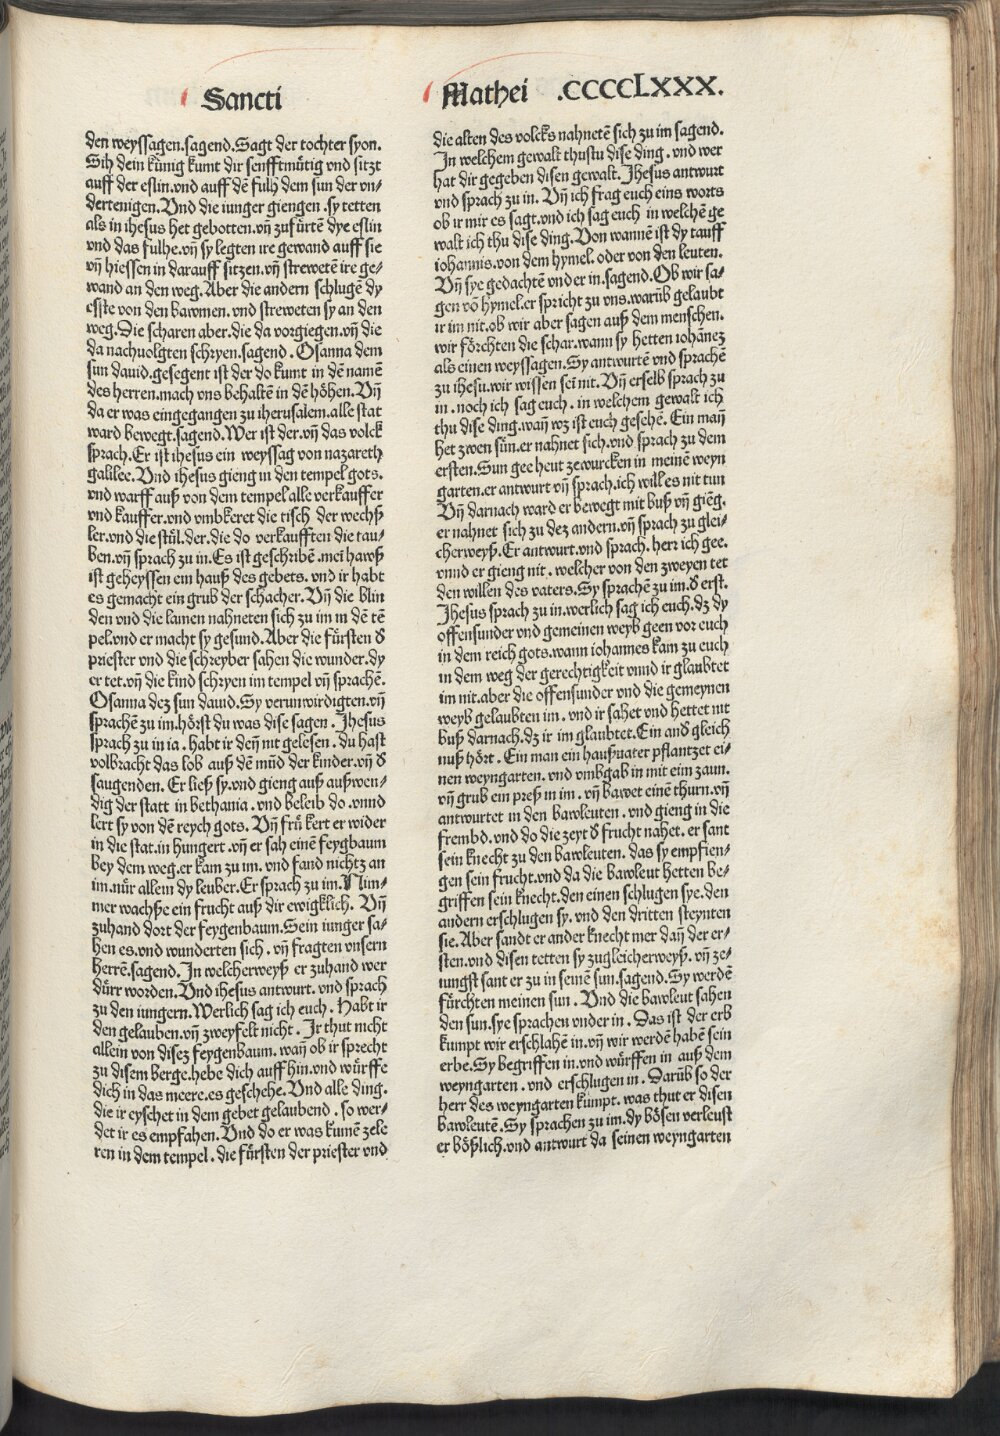 Sancti
Mathei .CCCCLXXX.
den weyssagen. sagend. Sagt der tochter syon.
Sih dein künig kumt dir senfftmütig vnd sitzt
auff der eslin. vnd auff dē fulh dem sun der vn-
dertenigen. Vnd die iunger giengen. sy tetten
als in ihesus het gebotten. vn̄ zufürtē dye eslin
vnd das fulhe. vn̄ sy legten ire gewand auff sie
vn̄ hiessen in darauff sitzen. vn̄ strewetē ire ge-
wand an den weg. Aber die andern schlugē dy
esste von den bawmen. vnd streweten sy an den
weg. Die scharen aber. die da vorgiegen. vn̄ die
da nachuolgten schryen. sagend. Osanna dem
sun dauid. gesegent ist der do kumt in dē namē
des herren. mach vns behaltē in dē höhen. Vn̄
da er was eingegangen zu iherusalem. alle stat
ward bewegt. sagend. Wer ist der. vn̄ das volck
sprach. Er ist ihesus ein weyssag von nazareth
galilee. Vnd ihesus gieng in den tempel gots.
vnd warff auß von dem tempel alle verkauffer
vnd kauffer. vnd vmbkeret die tisch der wechß
ler. vnd die stül. der. die do verkaufften die tau-
ben. vn̄ sprach zu in. Es ist geschribē. mei hawß
ist geheyssen ein hauß des gebets. vnd ir habt
es gemacht ein grub der schacher. Vn̄ die blin
den vnd die lamen nahneten sich zu im in dē tē
pel. vnd er macht sy gesund. Aber die fürsten d̄
priester vnd die schreyber sahen die wunder. dy
er tet. vn̄ die kind schryen im tempel vn̄ sprachē.
Osanna dez sun dauid. Sy verunwirdigten. vn̄
sprachē zu im. hörst du was dise sagen. Jhesus
sprach zu in ia. habt ir den̄ nit gelesen. du hast
volbracht das lob auß dē mūd der kinder. vn̄ d̄
saugenden. Er ließ sy. vnd gieng auß außwen-
dig der statt in bethania. vnd beleib do. vnnd
lert sy von dē reych gots. Vn̄ frü kert er wider
in die stat. in hungert. vn̄ er sah einē feygbaum
bey dem weg. er kam zu im. vnd fand nichtz an
im. nür allein dy leuber. Er sprach zu im. Nim-
mer wachße ein frucht auß dir ewigklich. Vn̄
zuhand dort der feygenbaum. Sein iunger sa-
hen es. vnd wunderten sich. vn̄ fragten vnsern
herrē. sagend. In welcherweyß er zuhand wer
dürr worden. Vnd ihesus antwurt. vnd sprach
zu den iungern. Werlich sag ich euch. Habt ir
den gelauben. vn̄ zweyfelt nicht. Ir thut nicht
allein von disez feygenbaum. wan̄ ob ir sprecht
zu disem berge. hebe dich auff hin. vnd würffe
dich in das meere. es geschche. Vnd alle ding.
die ir eyschet in dem gebet gelaubend. so wer-
det ir es empfahen. Vnd do er was kumē zele
ren in dem tempel. die fürsten der priester vnd
die alten des volcks nahnetē sich zu im sagend.
In welchem gewalt thustu dise ding. vnd wer
hat dir gegeben disen gewalt. Jhesus antwurt
vnd sprach zu in. Vn̄ ich frag euch eins worts
ob ir mir es sagt. vnd ich sag euch in welchē ge
walt ich thu dise ding. Von wannē ist dy tauff
iohannis. von dem hymel. oder von den leuten.
Vn̄ sye gedachtē vnder in. sagend. Ob wir sa-
gen vō hymel. er spricht zu vns. warūb gelaubt
ir im nit. ob wir aber sagen auß dem menschen.
wir förchten die schar. wann sy hetten iohānez
als einen weyssagen. Sy antwurtē vnd sprachē
zu ihesu. wir wissen sei nit. Vn̄ er selb sprach zu
in. noch ich sag euch. in welchem gewalt ich
thu dise ding. wan̄ wz ist euch gesehē. Ein man̄
het zwen sün. er nahnet sich. vnd sprach zu dem
ersten. Sun gee heut zewurcken in meinē weyn
garten. er antwurt vn̄ sprach. ich will es nit tun
Vn̄ darnach ward er bewegt mit buß vn̄ giēg.
er nahnet sich zu dez andern. vn̄ sprach zu glei-
cherweyß. Er antwurt. vnd sprach. herr ich gee.
vnnd er gieng nit. welcher von den zweyen tet
den willen des vaters. Sy sprachē zu im. d̄ erst.
Jhesus sprach zu in. werlich sag ich euch. dz dy
offensunder vnd gemeinen weyb geen vor euch
in dem reich gots. wann iohannes kam zu euch
in dem weg der gerechtigkeit vnnd ir glaubtet
im nit. aber die offensunder vnd die gemeynen
weyb gelaubten im. vnd ir sahet vnd hettet nit
buß darnach. dz ir im glaubtet. Ein and̄ gleich
nuß hört. Ein man ein haußuater pflantzet ei-
nen weyngarten. vnd vmbgab in mit eim zaun.
vn̄ grub ein preß in im. vn̄ bawet einē thurn. vn̄
antwurtet in den bawleuten. vnd gieng in die
frembd. vnd do die zeyt d̄ frucht nahet. er sant
sein knecht zu den bawleuten. das sy empfien-
gen sein frucht. vnd da die bawleut hetten be-
griffen sein knecht. den einen schlugen sye. den
andern erschlugen sy. vnd den dritten steynten
sie. Aber sandt er ander knecht mer dan̄ der er-
sten. vnd disen tetten sy zugleicherweyß. vn̄ ze-
iungst sant er zu in seinē sun. sagend. Sy werdē
fürchten meinen sun. Vnd die bawleut sahen
den sun. sye sprachen vnder in. Das ist der erb
kumpt wir erschlahē in. vn̄ wir werdē habē sein
erbe. Sy begriffen in. vnd würffen in auß dem
weyngarten. vnd erschlugen in. Darūb so der
herr des weyngarten kumpt. was thut er disen
bawleutē. Sy sprachen zu im. dy bösen verleust
er bößlich. vnd antwurt da seinen weyngarten